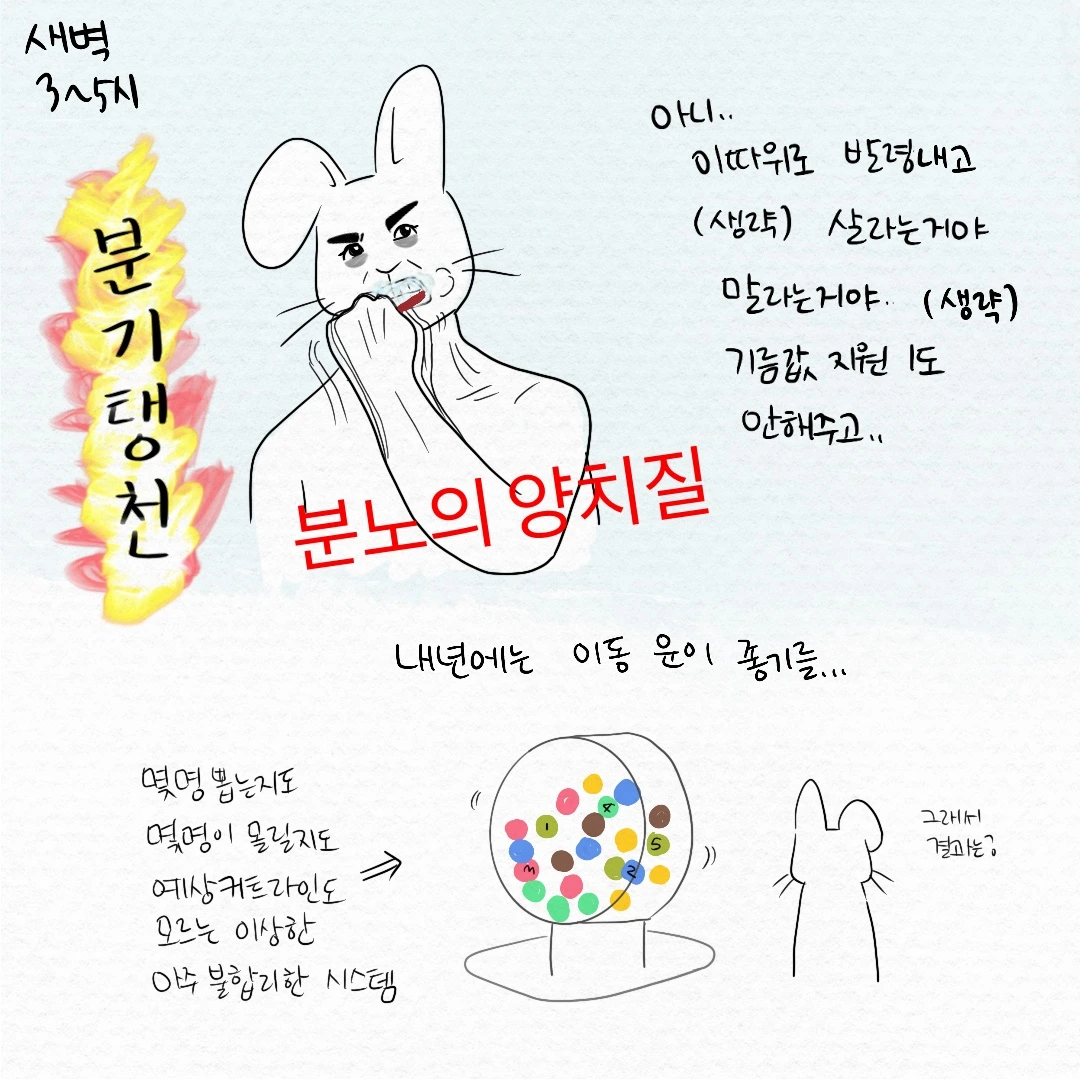 새벽
3~5시
분기탱천
아니..
이따위로 발령내고
(생략) 살라는거야
말라는거야.. (생략)
기름값 지원 1도
안해주고..
분노의 양치질
내년에는 이동 운이 좋기를...
몇명 뽑는지도
몇명이 몰릴지도
예상커트라인도
모르는 이상한
아주 불합리한 시스템
1
4
5
3
2
그래서
결과는?